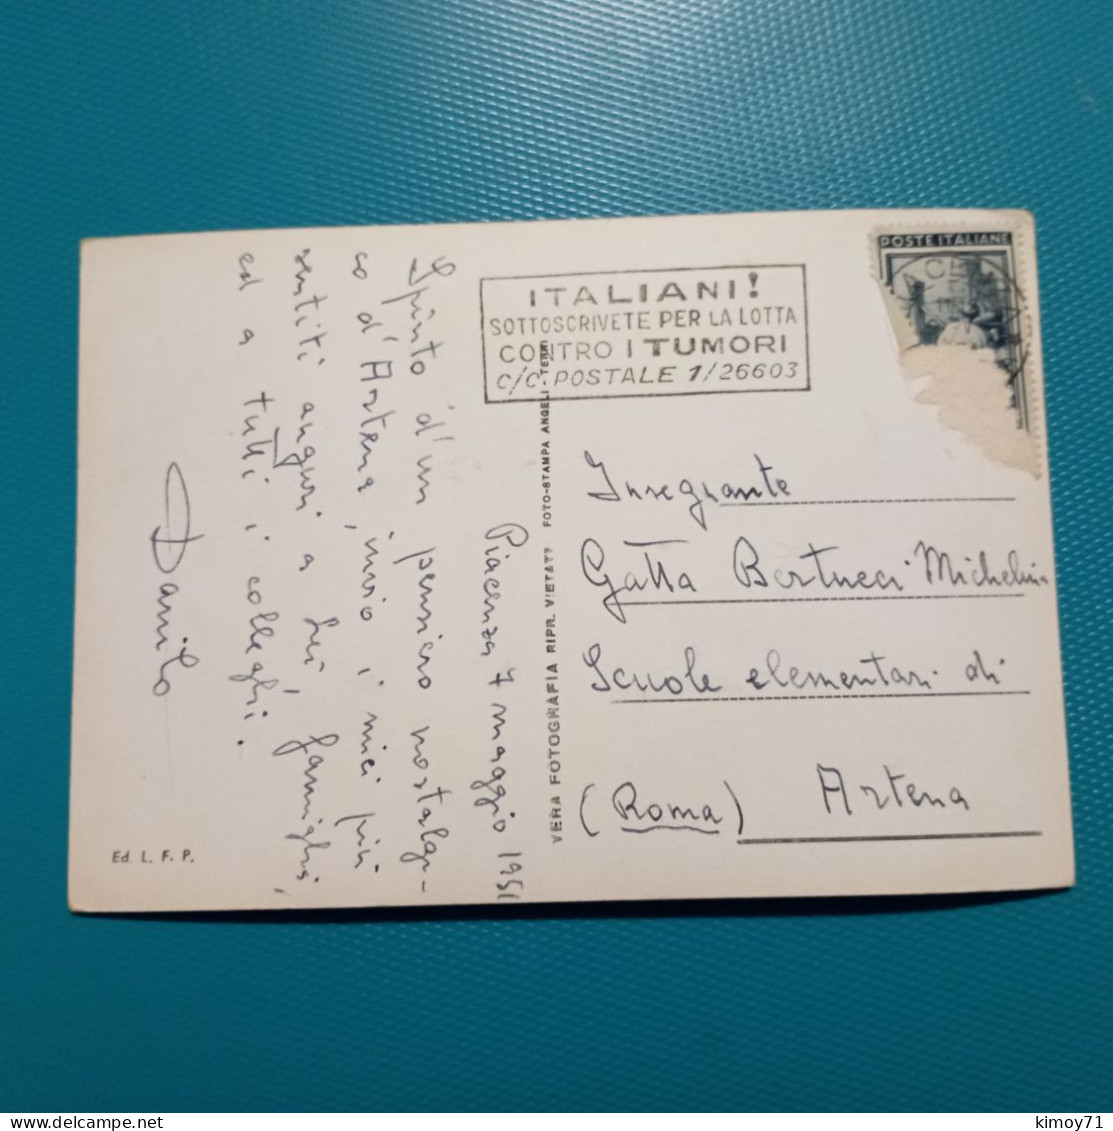 Piacenza 7 maggio 1951
Spinto d'un pensiero nostalgi-
co d'Artena, invio i miei più
sentiti auguri a Lei, famiglia,
ed a tutti i colleghi.
Danilo
Ed. L. F. P.
VERA FOTOGRAFIA RIPR. VIETATA FOTO-STAMPA ANGELI - TERNI
ITALIANI!
SOTTOSCRIVETE PER LA LOTTA
CONTRO I TUMORI
C/C POSTALE 1/26603
POSTE ITALIANE
Insegnante
Gatta Bertucci Michelina
Scuole elementari di
Artena
(Roma)
kimoy71